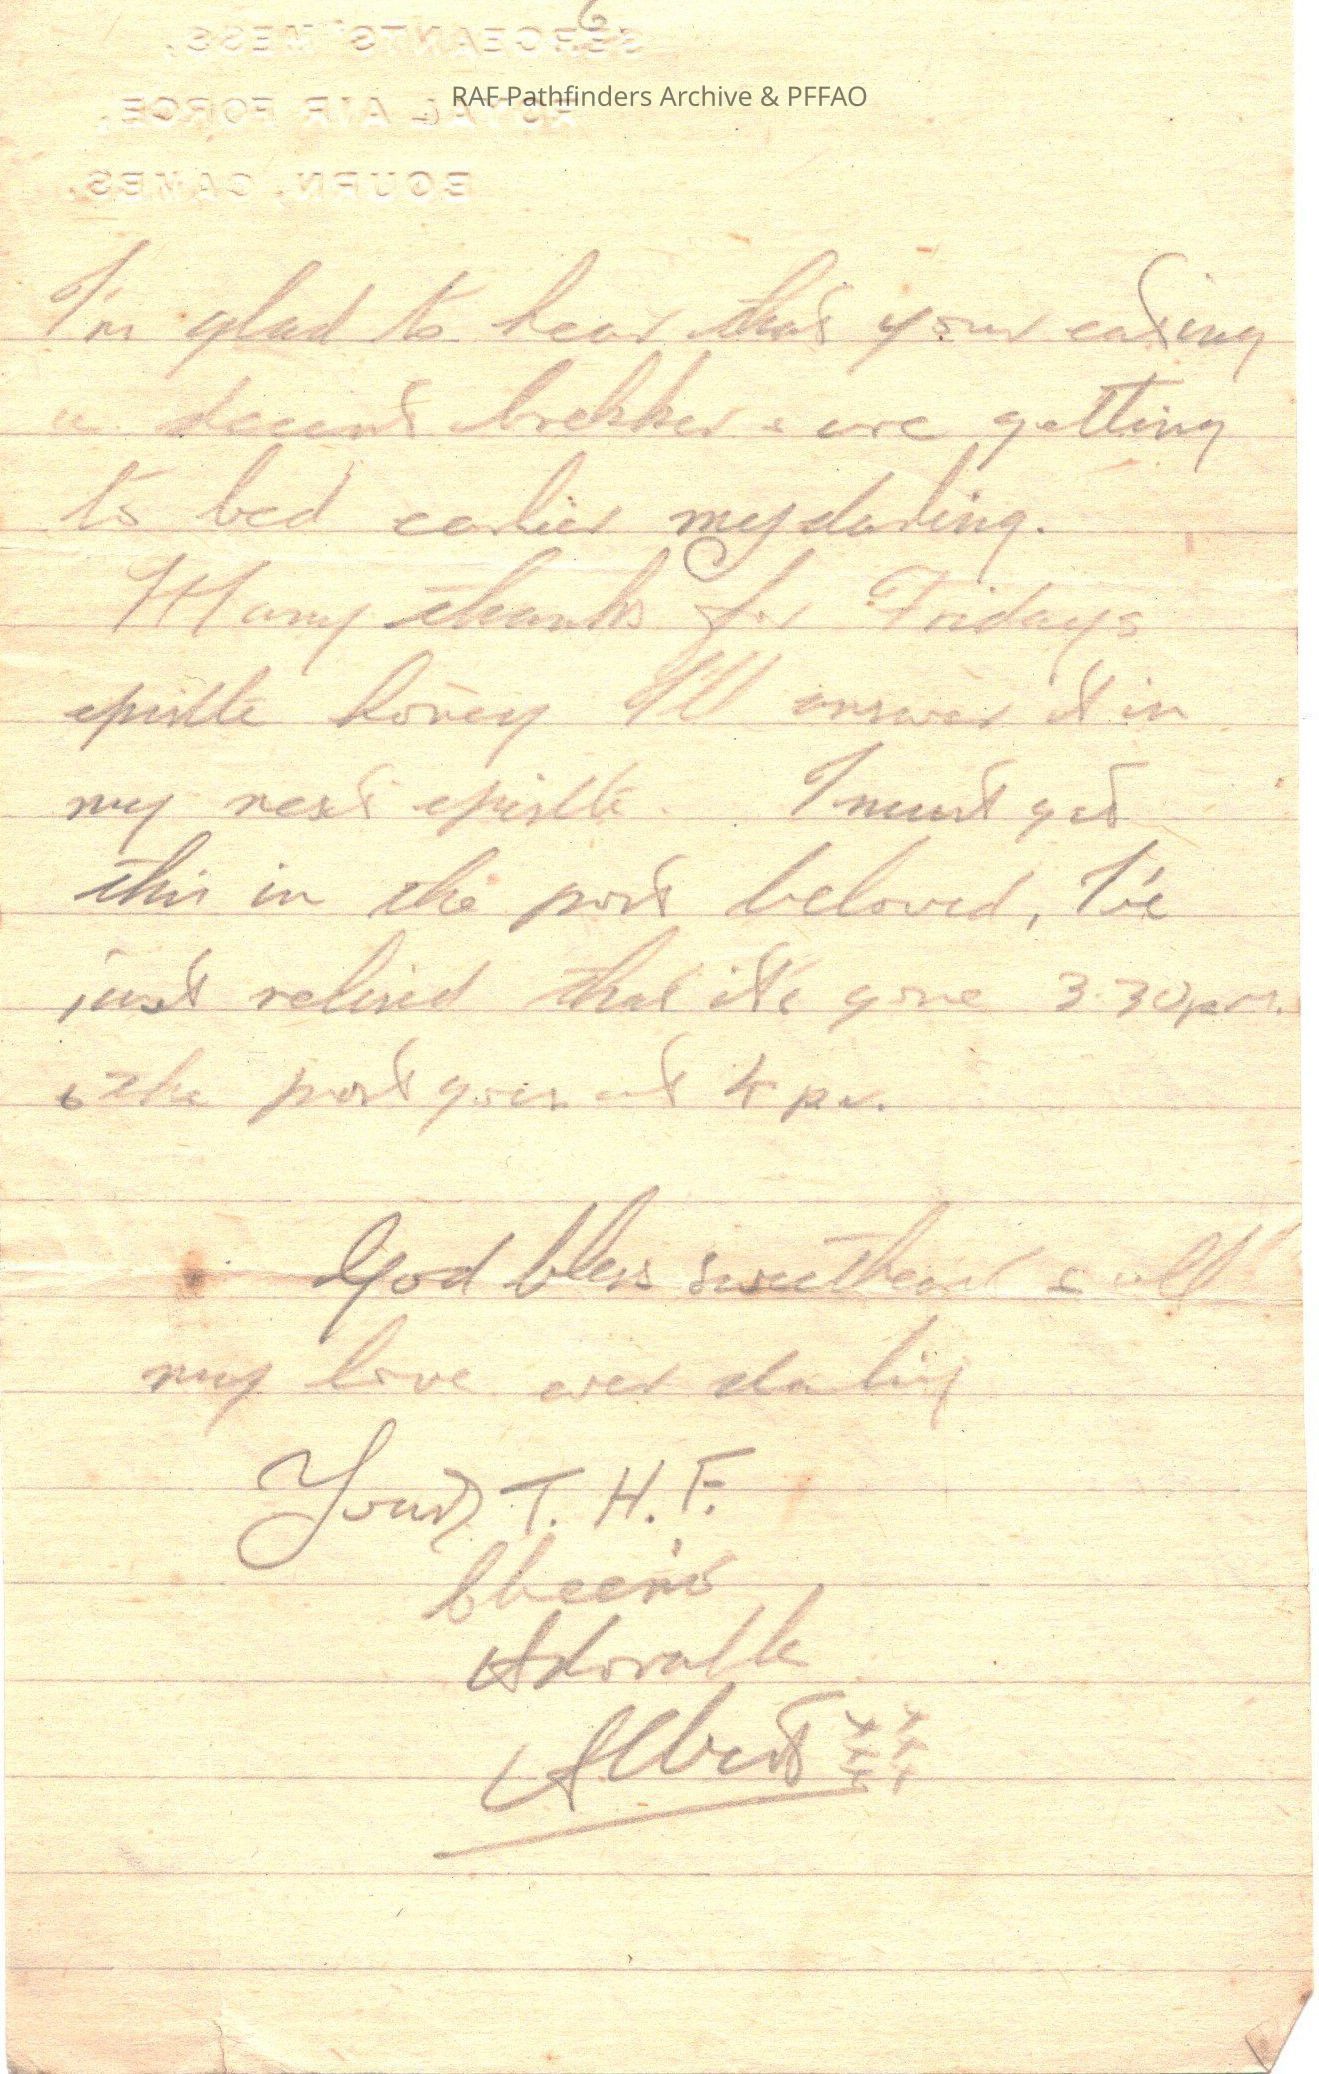 6
SERGEANTS' MESS,
RAF Pathfinders Archive & PFFAO
ROYAL AIR FORCE,
BOURN, CAMBS.
I'm glad to hear that your eating
a decent brekker & are getting
to bed earlier my darling.
Many thanks for Fridays
epistle honey I'll answer it in
my next epistle. I must get
this in the post beloved, I've
just relised that it's gone 3.30pm.
& the post goes at 4 pm.
God bless sweetheart & all
my love ever darling
Yours T. H. F.
Cheerio
Adorable
Albert xxxxxx